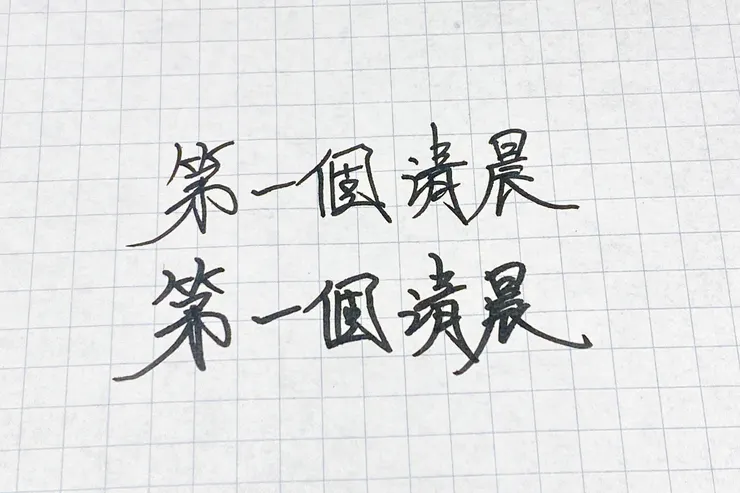 第一個清晨
第一個清晨